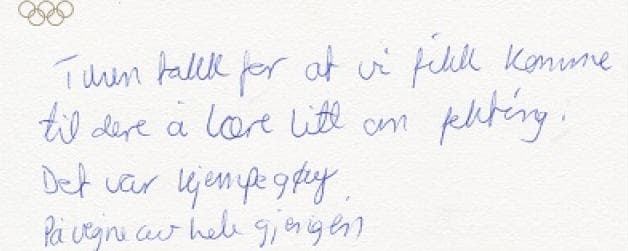 Tusen takk for at vi fikk komme
til dere å lære litt om fekting.
Det var kjempegøy
På vegne av hele gjengen